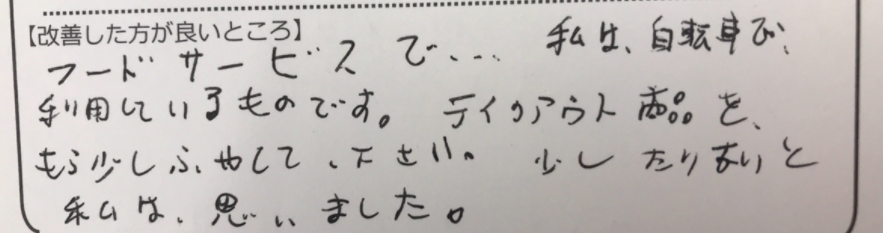 【改善した方が良いところ】
フードサービスで… 私は、自転車で、
利用しているものです。テイクアウト商品を、
もう少しふやして、下さい。少したりないと
私は、思いました。